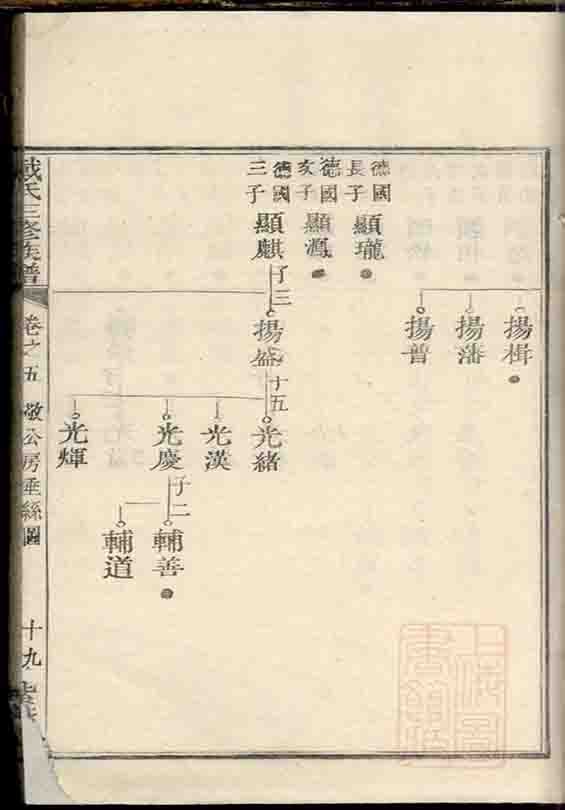 德國
長子
顯瓏
德國
次子
顯鳳
德國
三子
顯麒
子三
揚楫
揚藩
揚普
揚盛
子十五
光緒
光漢
光慶
子二
光煇
輔善
輔道
戴氏三修族譜
卷之五
敬公房垂絲圖
十九
上海圖
書館藏